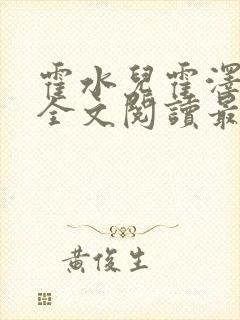 霍水兒霍澤
全文閱讀最
黃俊生